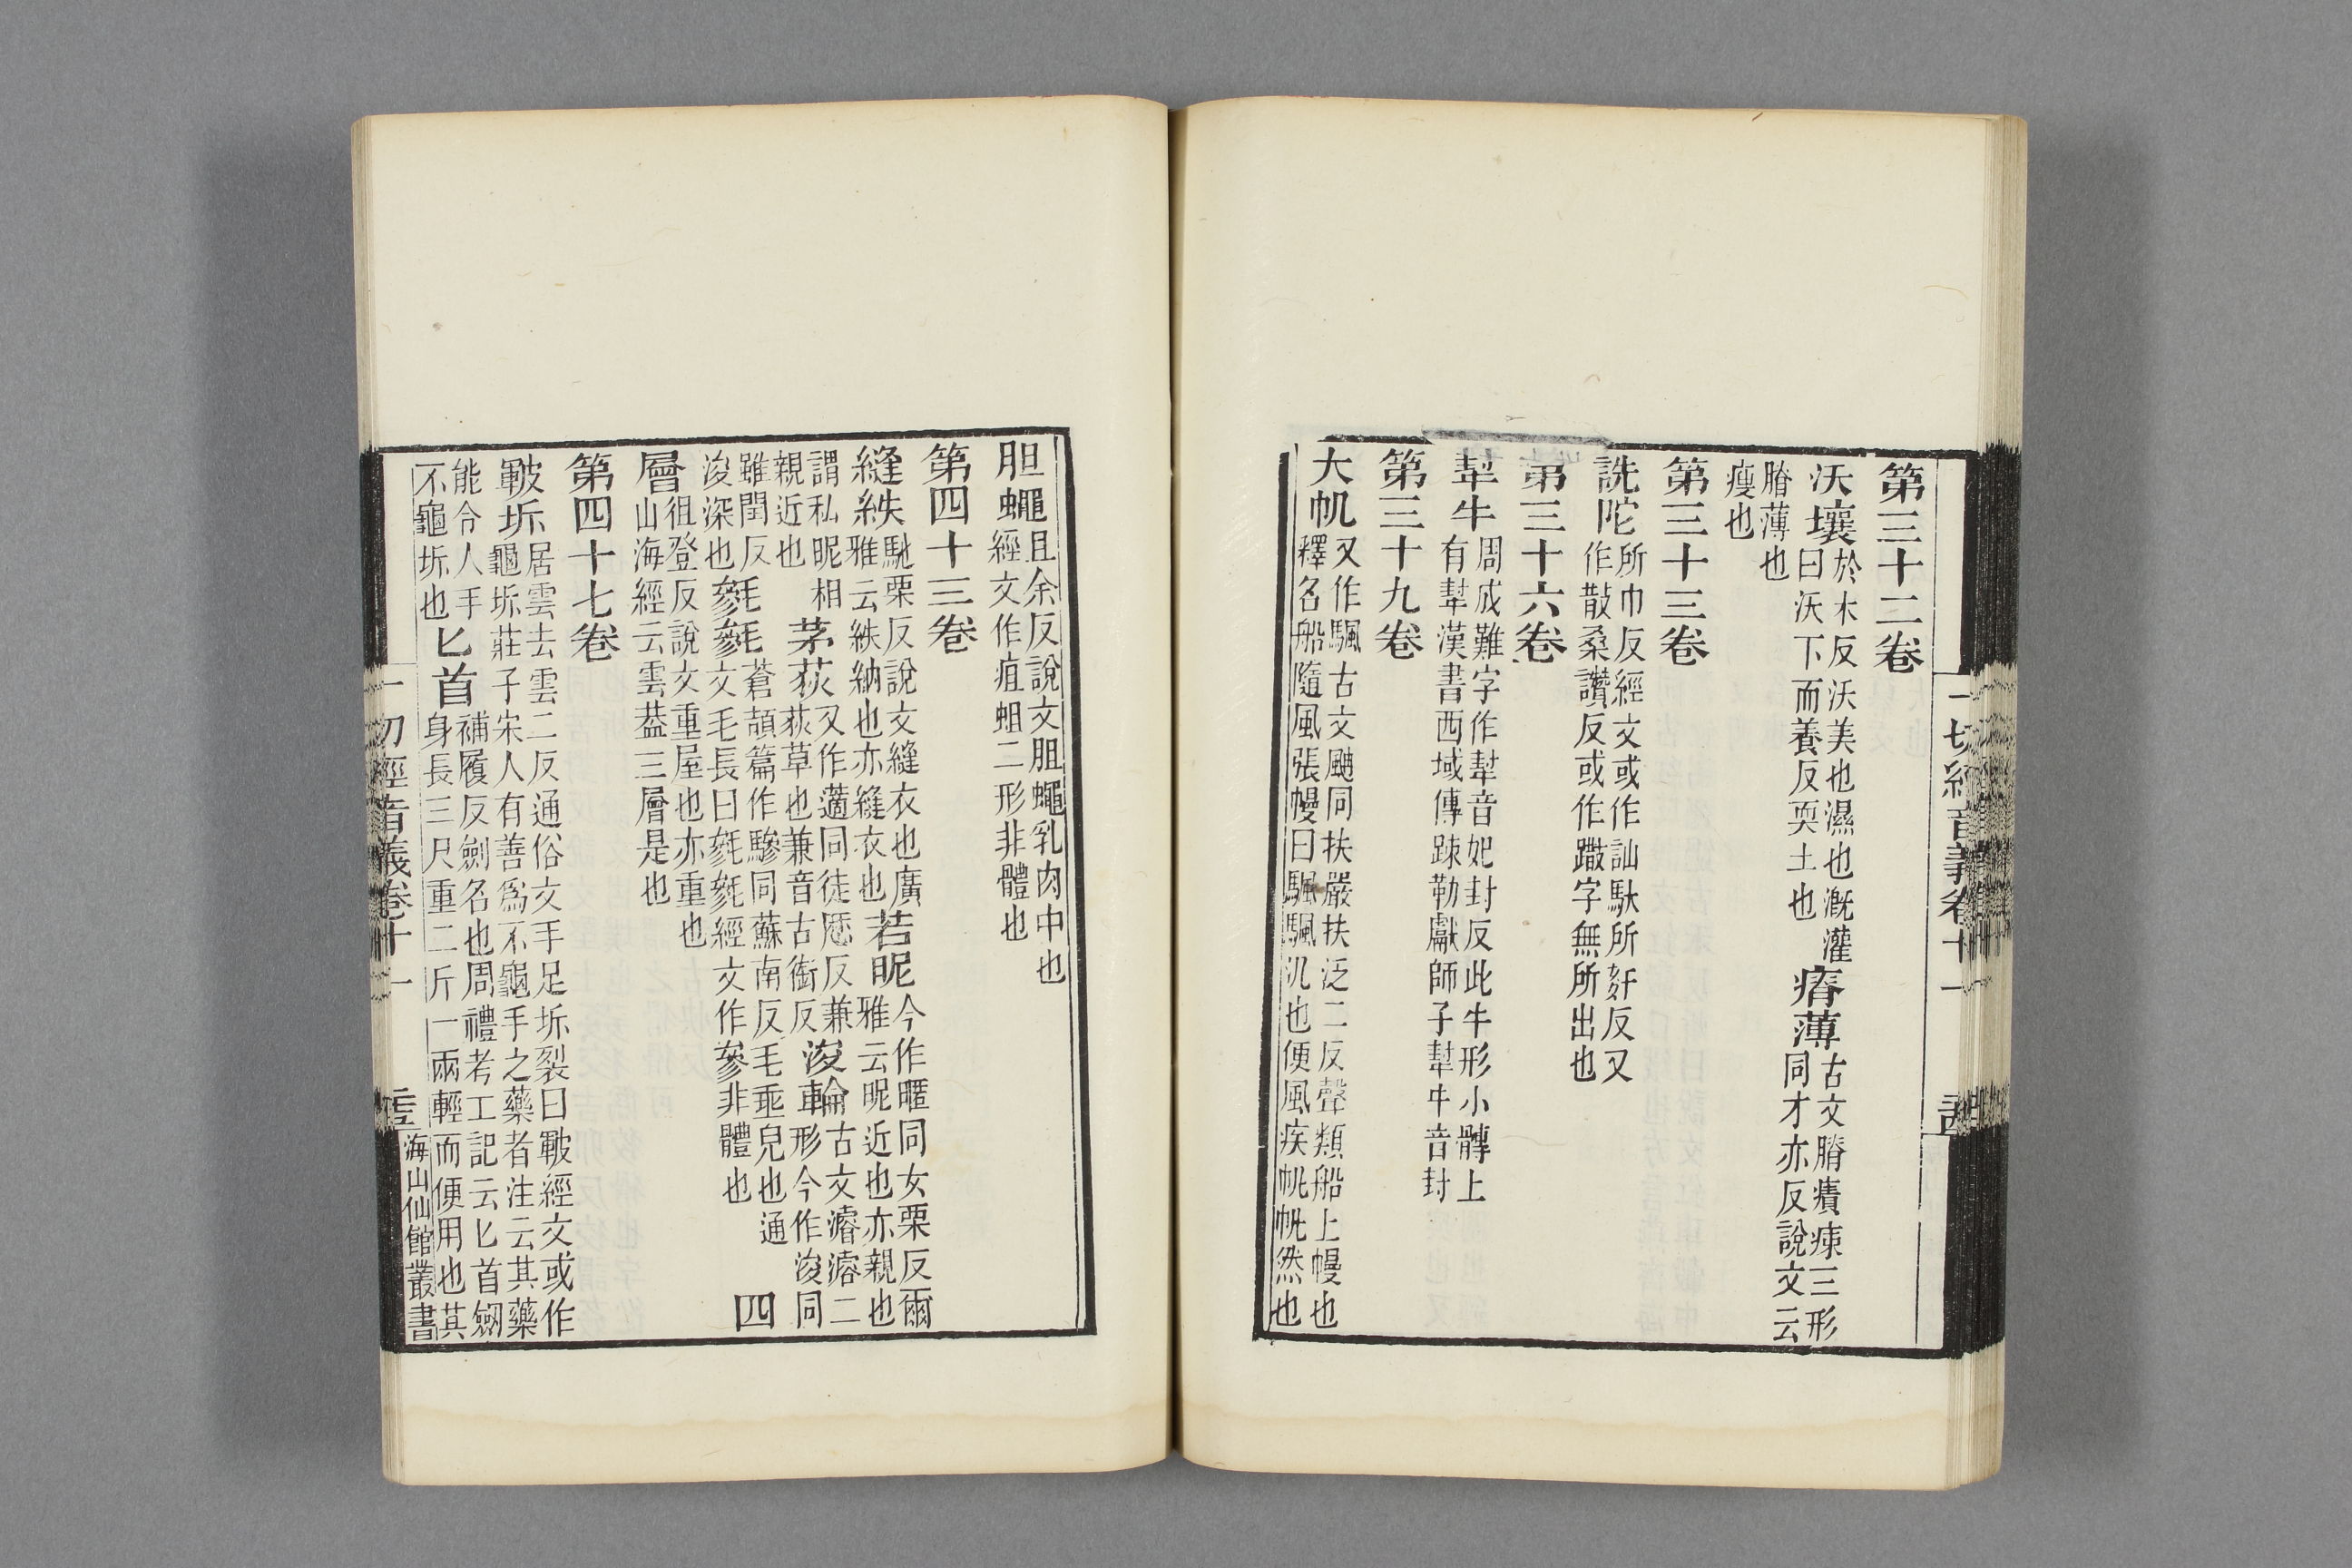 第三十二卷
沃壤於木反沃美也濕也漑灌
曰沃下而養反耎土也
瘠薄古文膌㾊𤷾三形
同才亦反說文云
膌薄也
瘦也
第三十三卷
詵陀所巾反經文或作訕馱所姧反又
作散桑讚反或作躐字無所出也
第三十六卷
犎牛周成難字作犎音妃封反此牛形小髆上
有犎漢書西域傳踈勒獻師子犎牛音封
第三十九卷
大帆又作颿古文颿同扶嚴扶泛二反聲類船上幔也
釋名船隨風張幔曰颿颿汎也便風疾帆帆然也
一切經音義卷十一
胆蠅且余反說文胆蠅乳肉中也
經文作疽蛆二形非體也
第四十三卷
縫紩馳栗反說文縫衣也廣
雅云紩納也亦縫衣也
若昵今作暱同女栗反爾
雅云昵近也亦親也
謂私昵相
親近也
茅荻又作藡同徒歷反兼
荻草也兼音古銜反
浚輪古文濬㴊二
形今作浚同
雖閏反
浚深也
毿毿蒼頡篇作䯂同蘇南反毛垂皃也通
文毛長曰毿毿經文作參非體也
四
層徂登反說文重屋也亦重也
山海經云雲葢三層是也
第四十七卷
皸坼居雲去雲二反通俗文手足坼裂曰皸經文或作
龜坼莊子宋人有善爲不龜手之藥者注云其藥
能令人手
不龜坼也
匕首補履反劍名也周禮考工記云匕首劒
身長三尺重二斤一兩輕而便用也其
一切經音義卷十一
海山仙館叢書